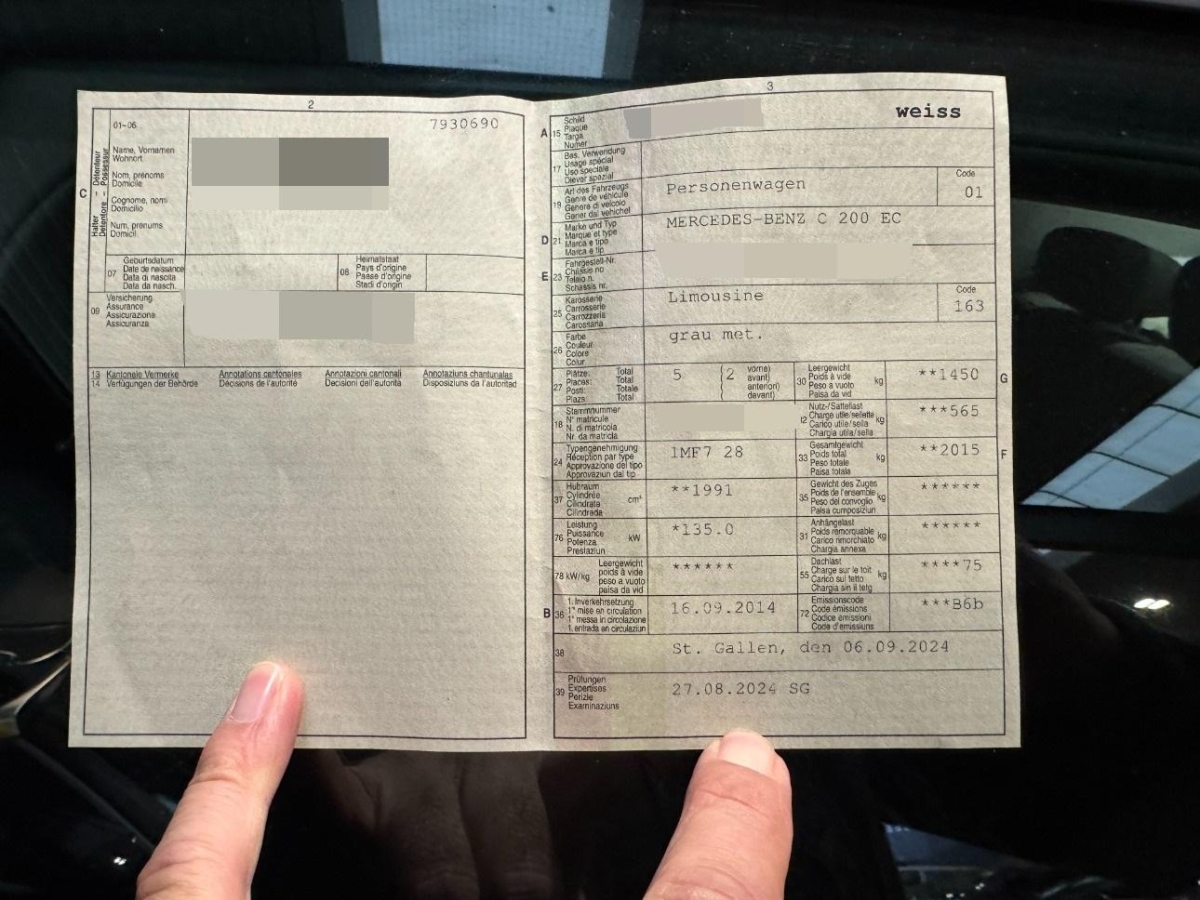 2
01-06
7930690
C
Halter
Détenteur
Detentore
Possessur
Name, Vornamen
Wohnort
Nom, prénoms
Domicile
Cognome, nomi
Domicilio
Num, prenums
Domicil
07
Geburtsdatum
Date de naissance
Data di nascita
Data da nasch.
08
Heimatstaat
Pays d'origine
Paese d'origine
Stadi d'origin
09
Versicherung
Assurance
Assicurazione
Assicuranza
13 Kantonale Vermerke Annotations cantonales Annotazioni cantonali Annotaziuns chantunalas
14 Verfügungen der Behörde Décisions de l'autorité Decisioni dell'autorità Disposiziuns da l'autoritad
3
A 15
Schild
Plaque
Targa
Numer
weiss
17
Bes. Verwendung
Usage spécial
Uso speciale
Diever spezial
19
Art des Fahrzeugs
Genre de véhicule
Genere di veicolo
Gener dal vehichel
Personenwagen
Code
01
D 21
Marke und Typ
Marque et type
Marca e tipo
Marca e tip
MERCEDES-BENZ C 200 EC
E 23
Fahrgestell-Nr.
Châssis no
Telaio n.
Schassis nr.
25
Karosserie
Carrosserie
Carrozzeria
Carossaria
Limousine
Code
163
26
Farbe
Couleur
Colore
Colur
grau met.
27
Plätze: Total
Places: Total
Posti: Totale
Plazs: Total
5
(2
vorne)
avant)
anteriori)
davant)
30
Leergewicht
Poids à vide
Peso a vuoto
Paisa da vid
kg
**1450
G
18
Stammnummer
N° matricule
N. di matricola
Nr. da matricla
12
Nutz-/Sattellast
Charge utile/sellette
Carico utile/sella
Chargia utila/sella
kg
***565
24
Typengenehmigung
Réception par type
Approvazione del tipo
Approvaziun dal tip
1MF7 28
33
Gesamtgewicht
Poids total
Peso totale
Paisa totala
kg
**2015
F
37
Hubraum
Cylindrée
Cilindrata
Cilindrada
cm³
**1991
35
Gewicht des Zuges
Poids de l'ensemble
Peso del convoglio
Paisa cumposiziun
kg
******
76
Leistung
Puissance
Potenza
Prestaziun
kW
*135.0
31
Anhängelast
Poids remorquable
Carico rimorchiato
Chargia annexa
kg
******
78 kW/kg
Leergewicht
poids à vide
peso a vuoto
paisa da vid
******
55
Dachlast
Charge sur le toit
Carico sul tetto
Chargia sin il tetg
kg
****75
B 36
1. Inverkehrsetzung
1re mise en circulation
1a messa in circolazione
1. entrada en circulaziun
16.09.2014
72
Emissionscode
Code émissions
Codice emissioni
Code d'emissiuns
***B6b
38
St. Gallen, den 06.09.2024
39
Prüfungen
Expertises
Perizie
Examinaziuns
27.08.2024 SG